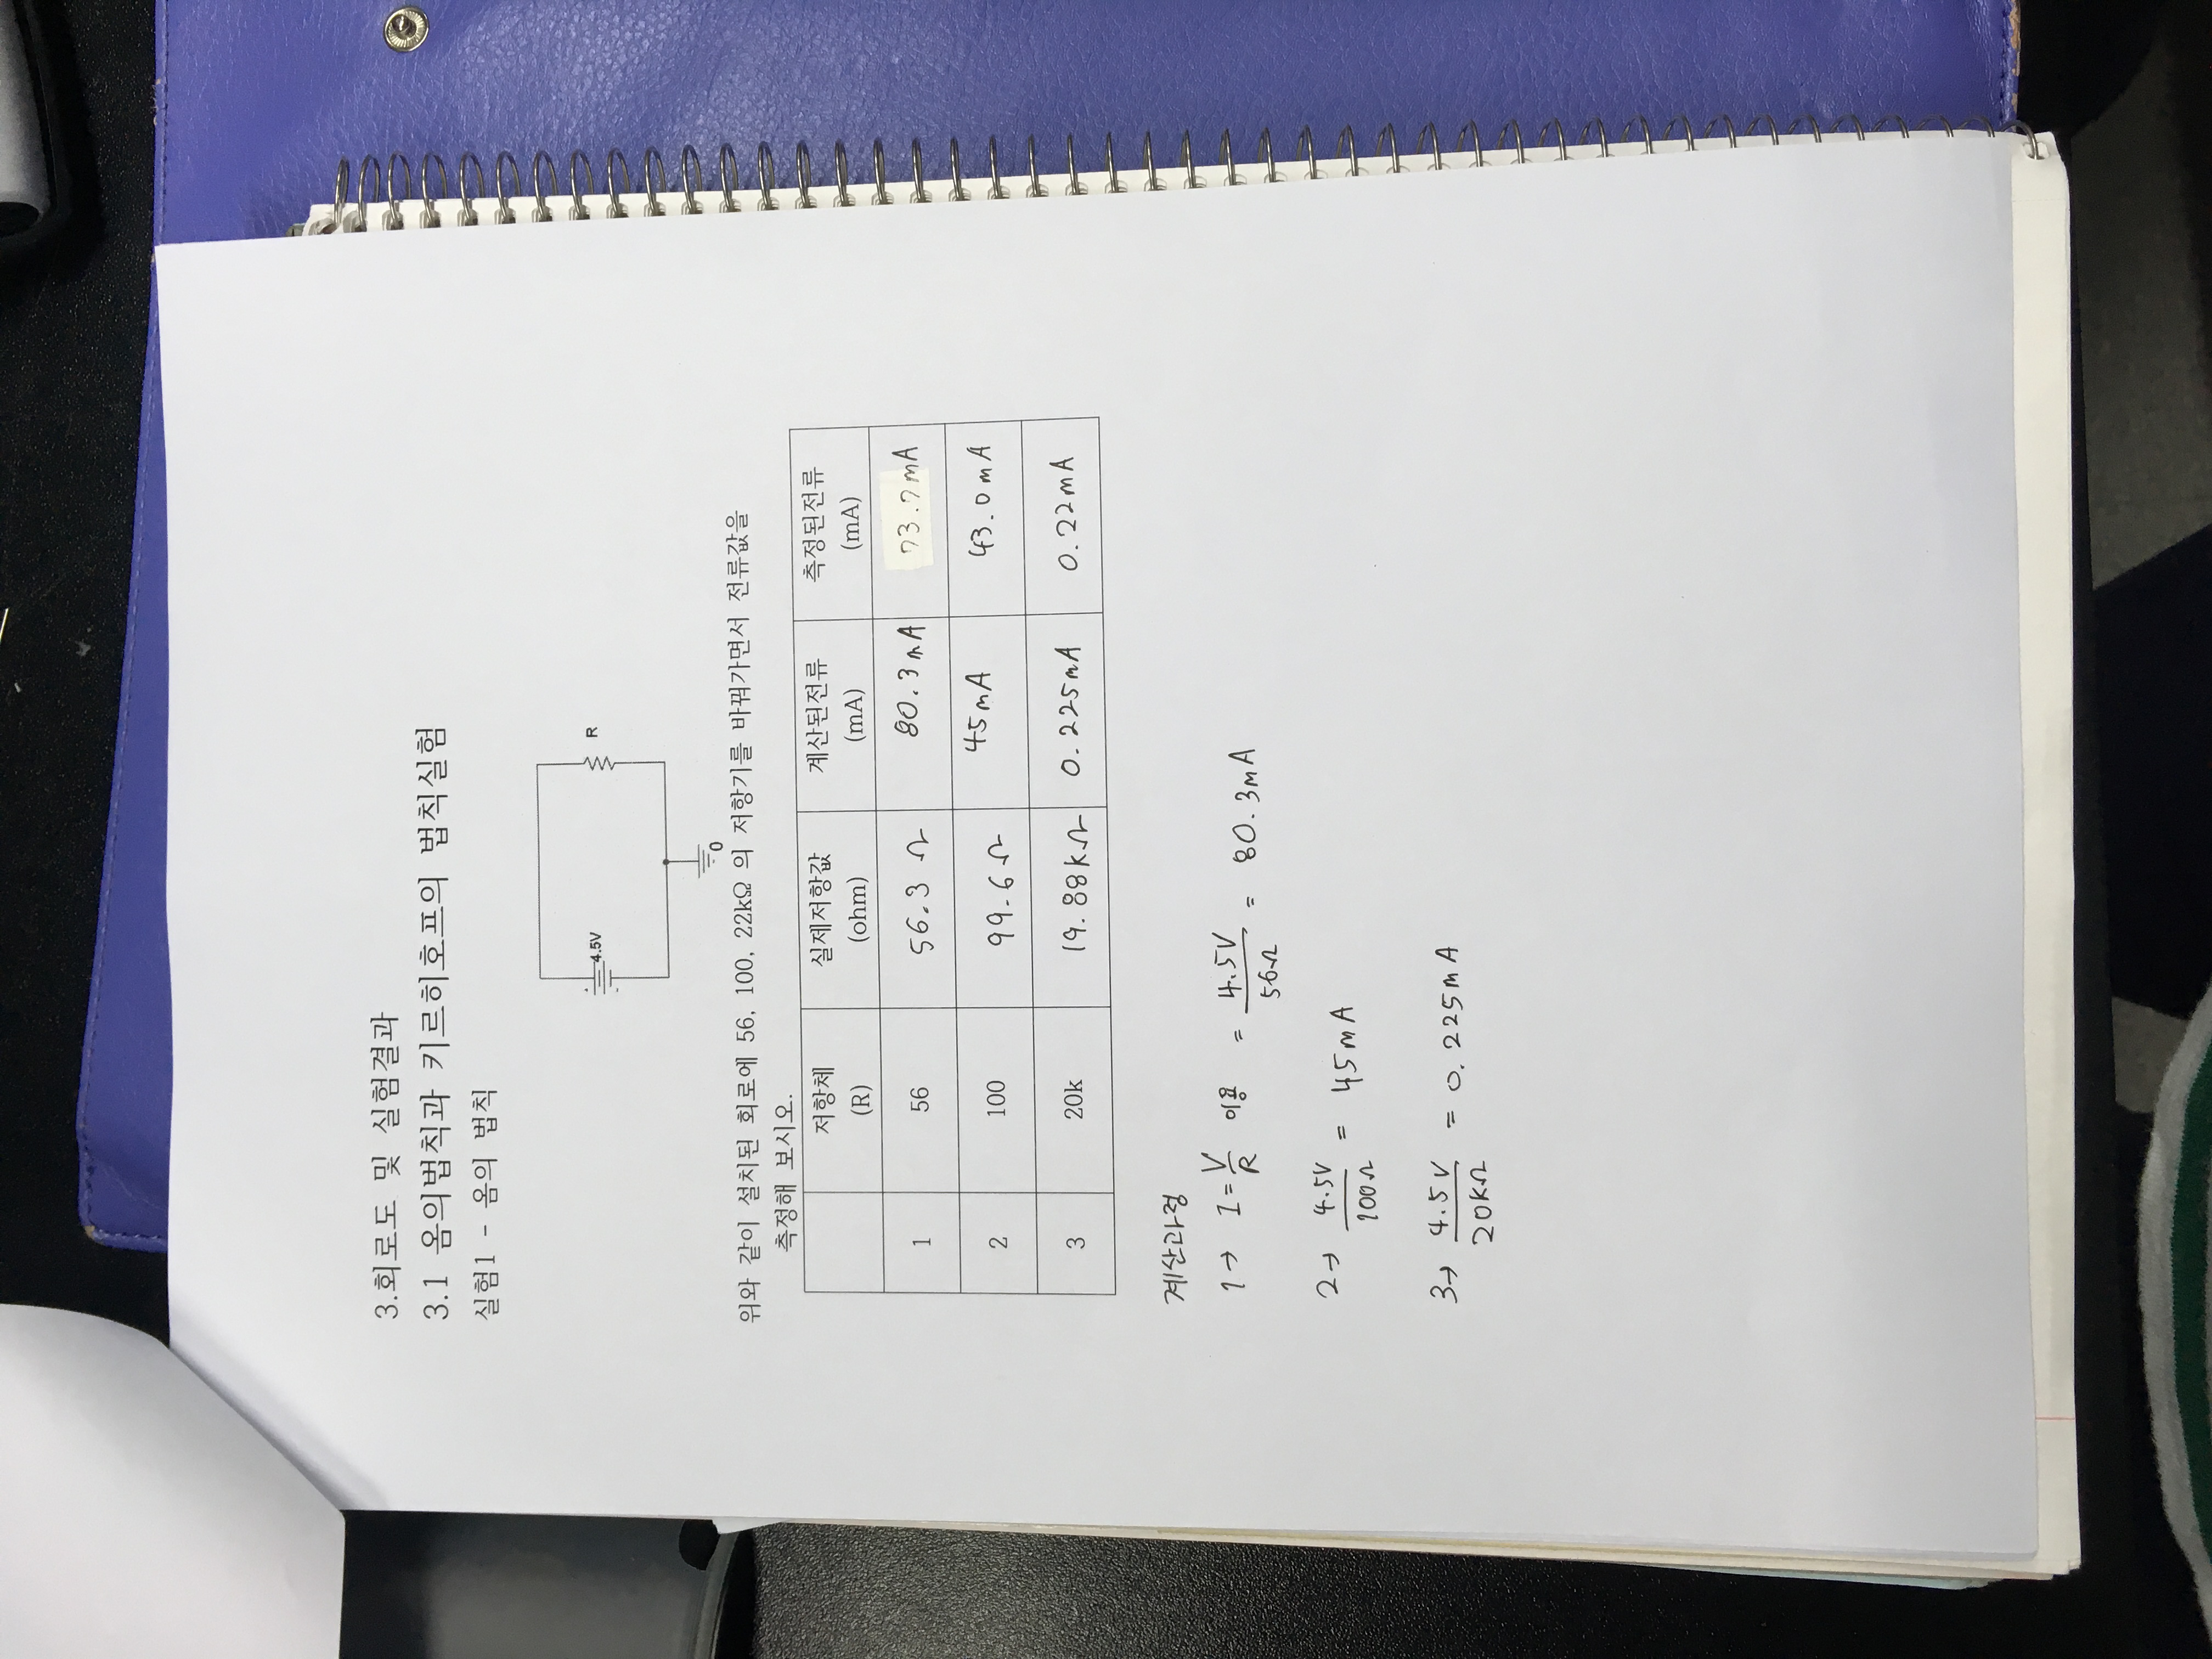 3.회로도 및 실험결과
3.1 옴의법칙과 키르히호프의 법칙실험
실험1 - 옴의 법칙
+
4.5V
R
-
0
위와 같이 설치된 회로에 56, 100, 22kΩ 의 저항기를 바꿔가면서 전류값을
측정해 보시오.
저항체 (R) 실제저항값 (ohm) 계산된전류 (mA) 측정된전류 (mA)
1 56 56.3 Ω 80.3mA 73.7mA
2 100 99.6Ω 45mA 43.0mA
3 20k 19.88kΩ 0.225mA 0.22mA
계산과정
1→ I=V/R 이용 = 4.5V/56Ω = 80.3mA
2→ 4.5V/100Ω = 45mA
3→ 4.5V/20KΩ = 0.225mA